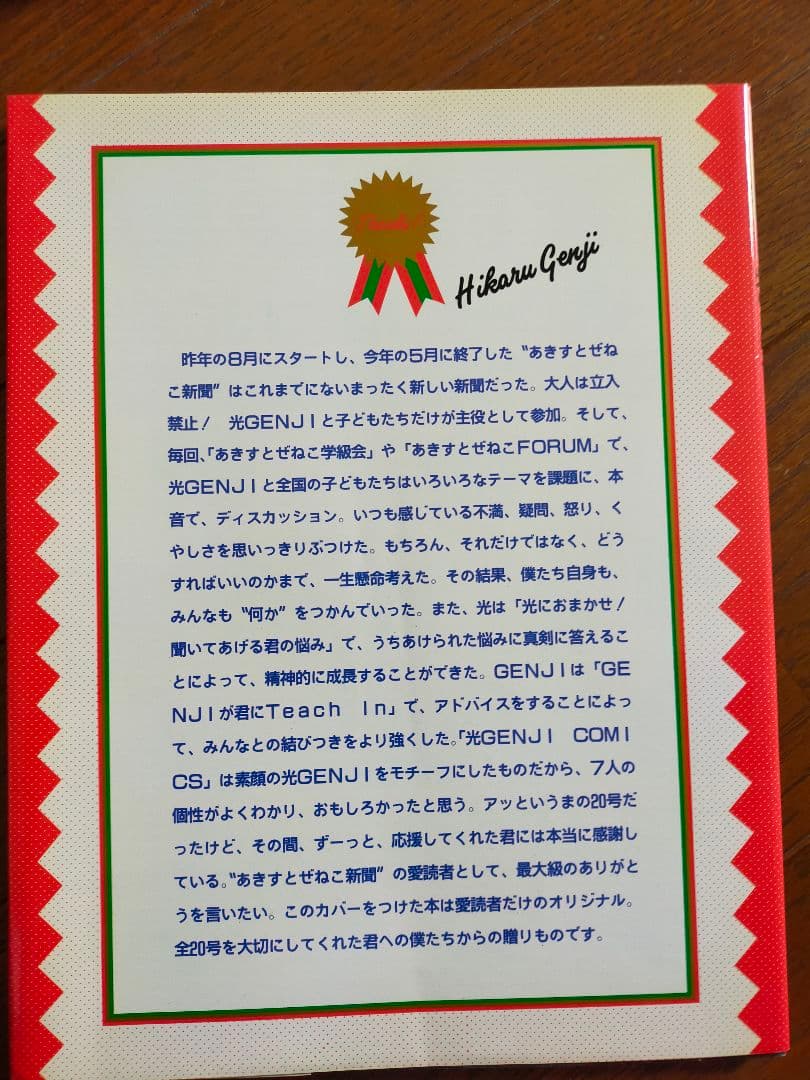 Thanks!
Hikaru Genji
昨年の8月にスタートし、今年の5月に終了した〝あきすとぜね
こ新聞〟はこれまでにないまったく新しい新聞だった。大人は立入
禁止！　光GENJIと子どもたちだけが主役として参加。そして、
毎回、「あきすとぜねこ学級会」や「あきすとぜねこFORUM」で、
光GENJIと全国の子どもたちはいろいろなテーマを課題に、本
音で、ディスカッション。いつも感じている不満、疑問、怒り、く
やしさを思いっきりぶつけた。もちろん、それだけではなく、どう
すればいいのかまで、一生懸命考えた。その結果、僕たち自身も、
みんなも〝何か〟をつかんでいった。また、光は「光におまかせ！
聞いてあげる君の悩み」で、うちあけられた悩みに真剣に答えるこ
とによって、精神的に成長することができた。GENJIは「GE
NJIが君にTeach In」で、アドバイスをすることによっ
て、みんなとの結びつきをより強くした。「光GENJI COMI
CS」は素顔の光GENJIをモチーフにしたものだから、7人の
個性がよくわかり、おもしろかったと思う。アッというまの20号だ
ったけど、その間、ずーっと、応援してくれた君には本当に感謝し
ている。〝あきすとぜねこ新聞〟の愛読者として、最大級のありがと
うを言いたい。このカバーをつけた本は愛読者だけのオリジナル。
全20号を大切にしてくれた君への僕たちからの贈りものです。